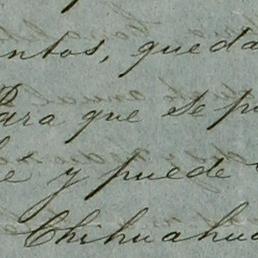 entos, queda
Para que se p
é y puede
Chihuahua